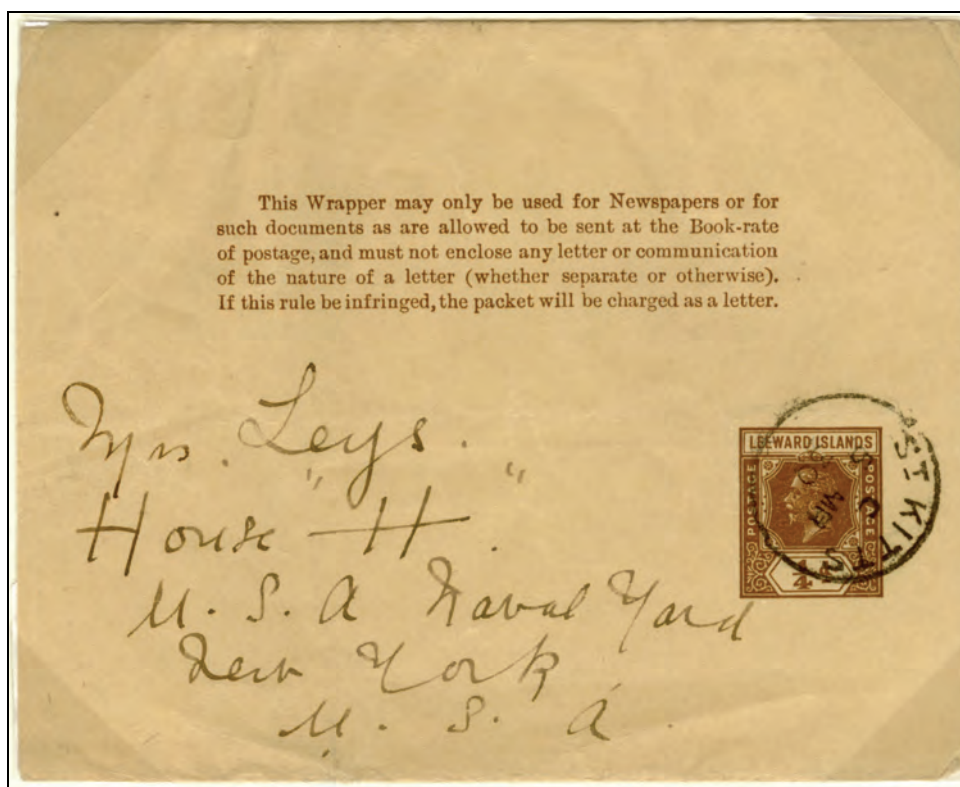 This Wrapper may only be used for Newspapers or for
such documents as are allowed to be sent at the Book-rate
of postage, and must not enclose any letter or communication
of the nature of a letter (whether separate or otherwise).
If this rule be infringed, the packet will be charged as a letter.
Mrs. Leys.
House "H".
U. S. A Naval Yard
New York
U. S. A.
LEEWARD ISLANDS
POSTAGE
POSTAGE
¼d
ST KITTS
C